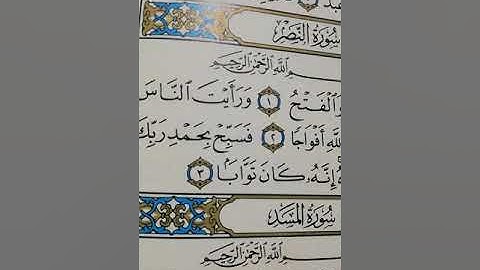 سُورَةُ النَّصْرِ
ـمِ اللَّهِ الرَّحْمَٰنِ الرَّحِيمِ
وَالْفَتْحُ ١ وَرَأَيْتَ النَّاسَ
اللَّهِ أَفْوَاجًا ٢ فَسَبِّحْ بِحَمْدِ رَبِّكَ
إِنَّهُ كَانَ تَوَّابًا ٣
سُورَةُ الْمَسَدِ
ـمِ اللَّهِ الرَّحْمَٰنِ الرَّحِيمِ